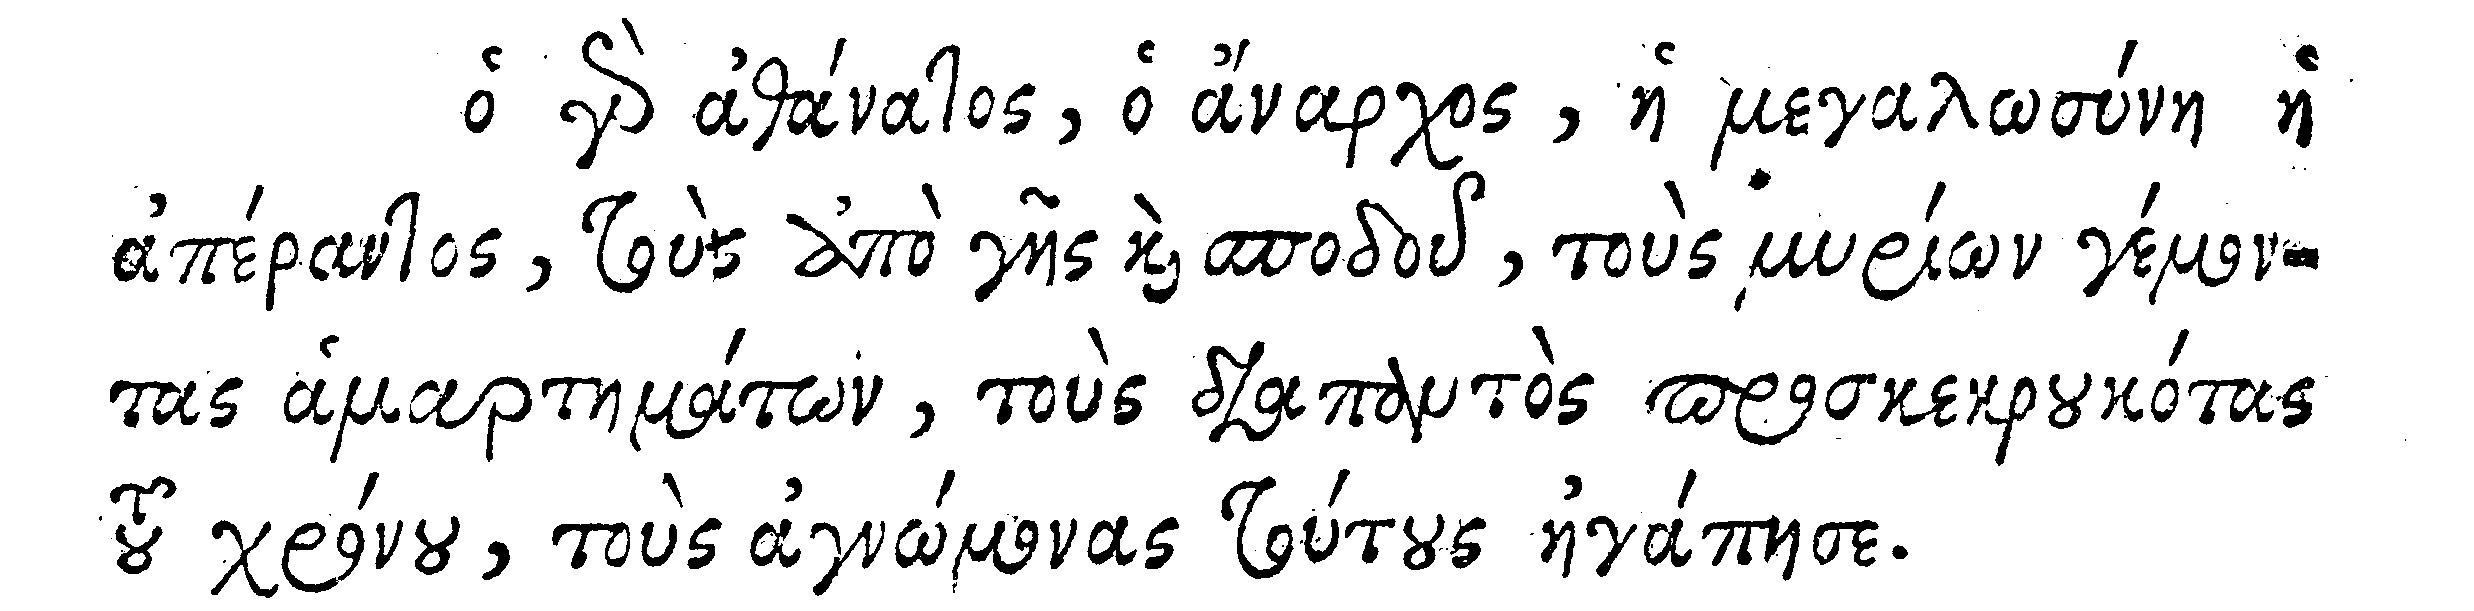 ὁ γὰρ ἀθάνατος, ὁ ἄναρχος, ἡ μεγαλωσύνη ἡ
ἀπέραντος, τοὺς ἀπὸ γῆς ϗ σποδοῦ, τοὺς μυρίων γέμον-
τας ἁμαρτημάτων, τοὺς διαπαντὸς προσκεκρȣκότας
τȣ͂ χρόνȣ, τοὺς ἀγνώμονας τούτȣς ἠγάπησε.